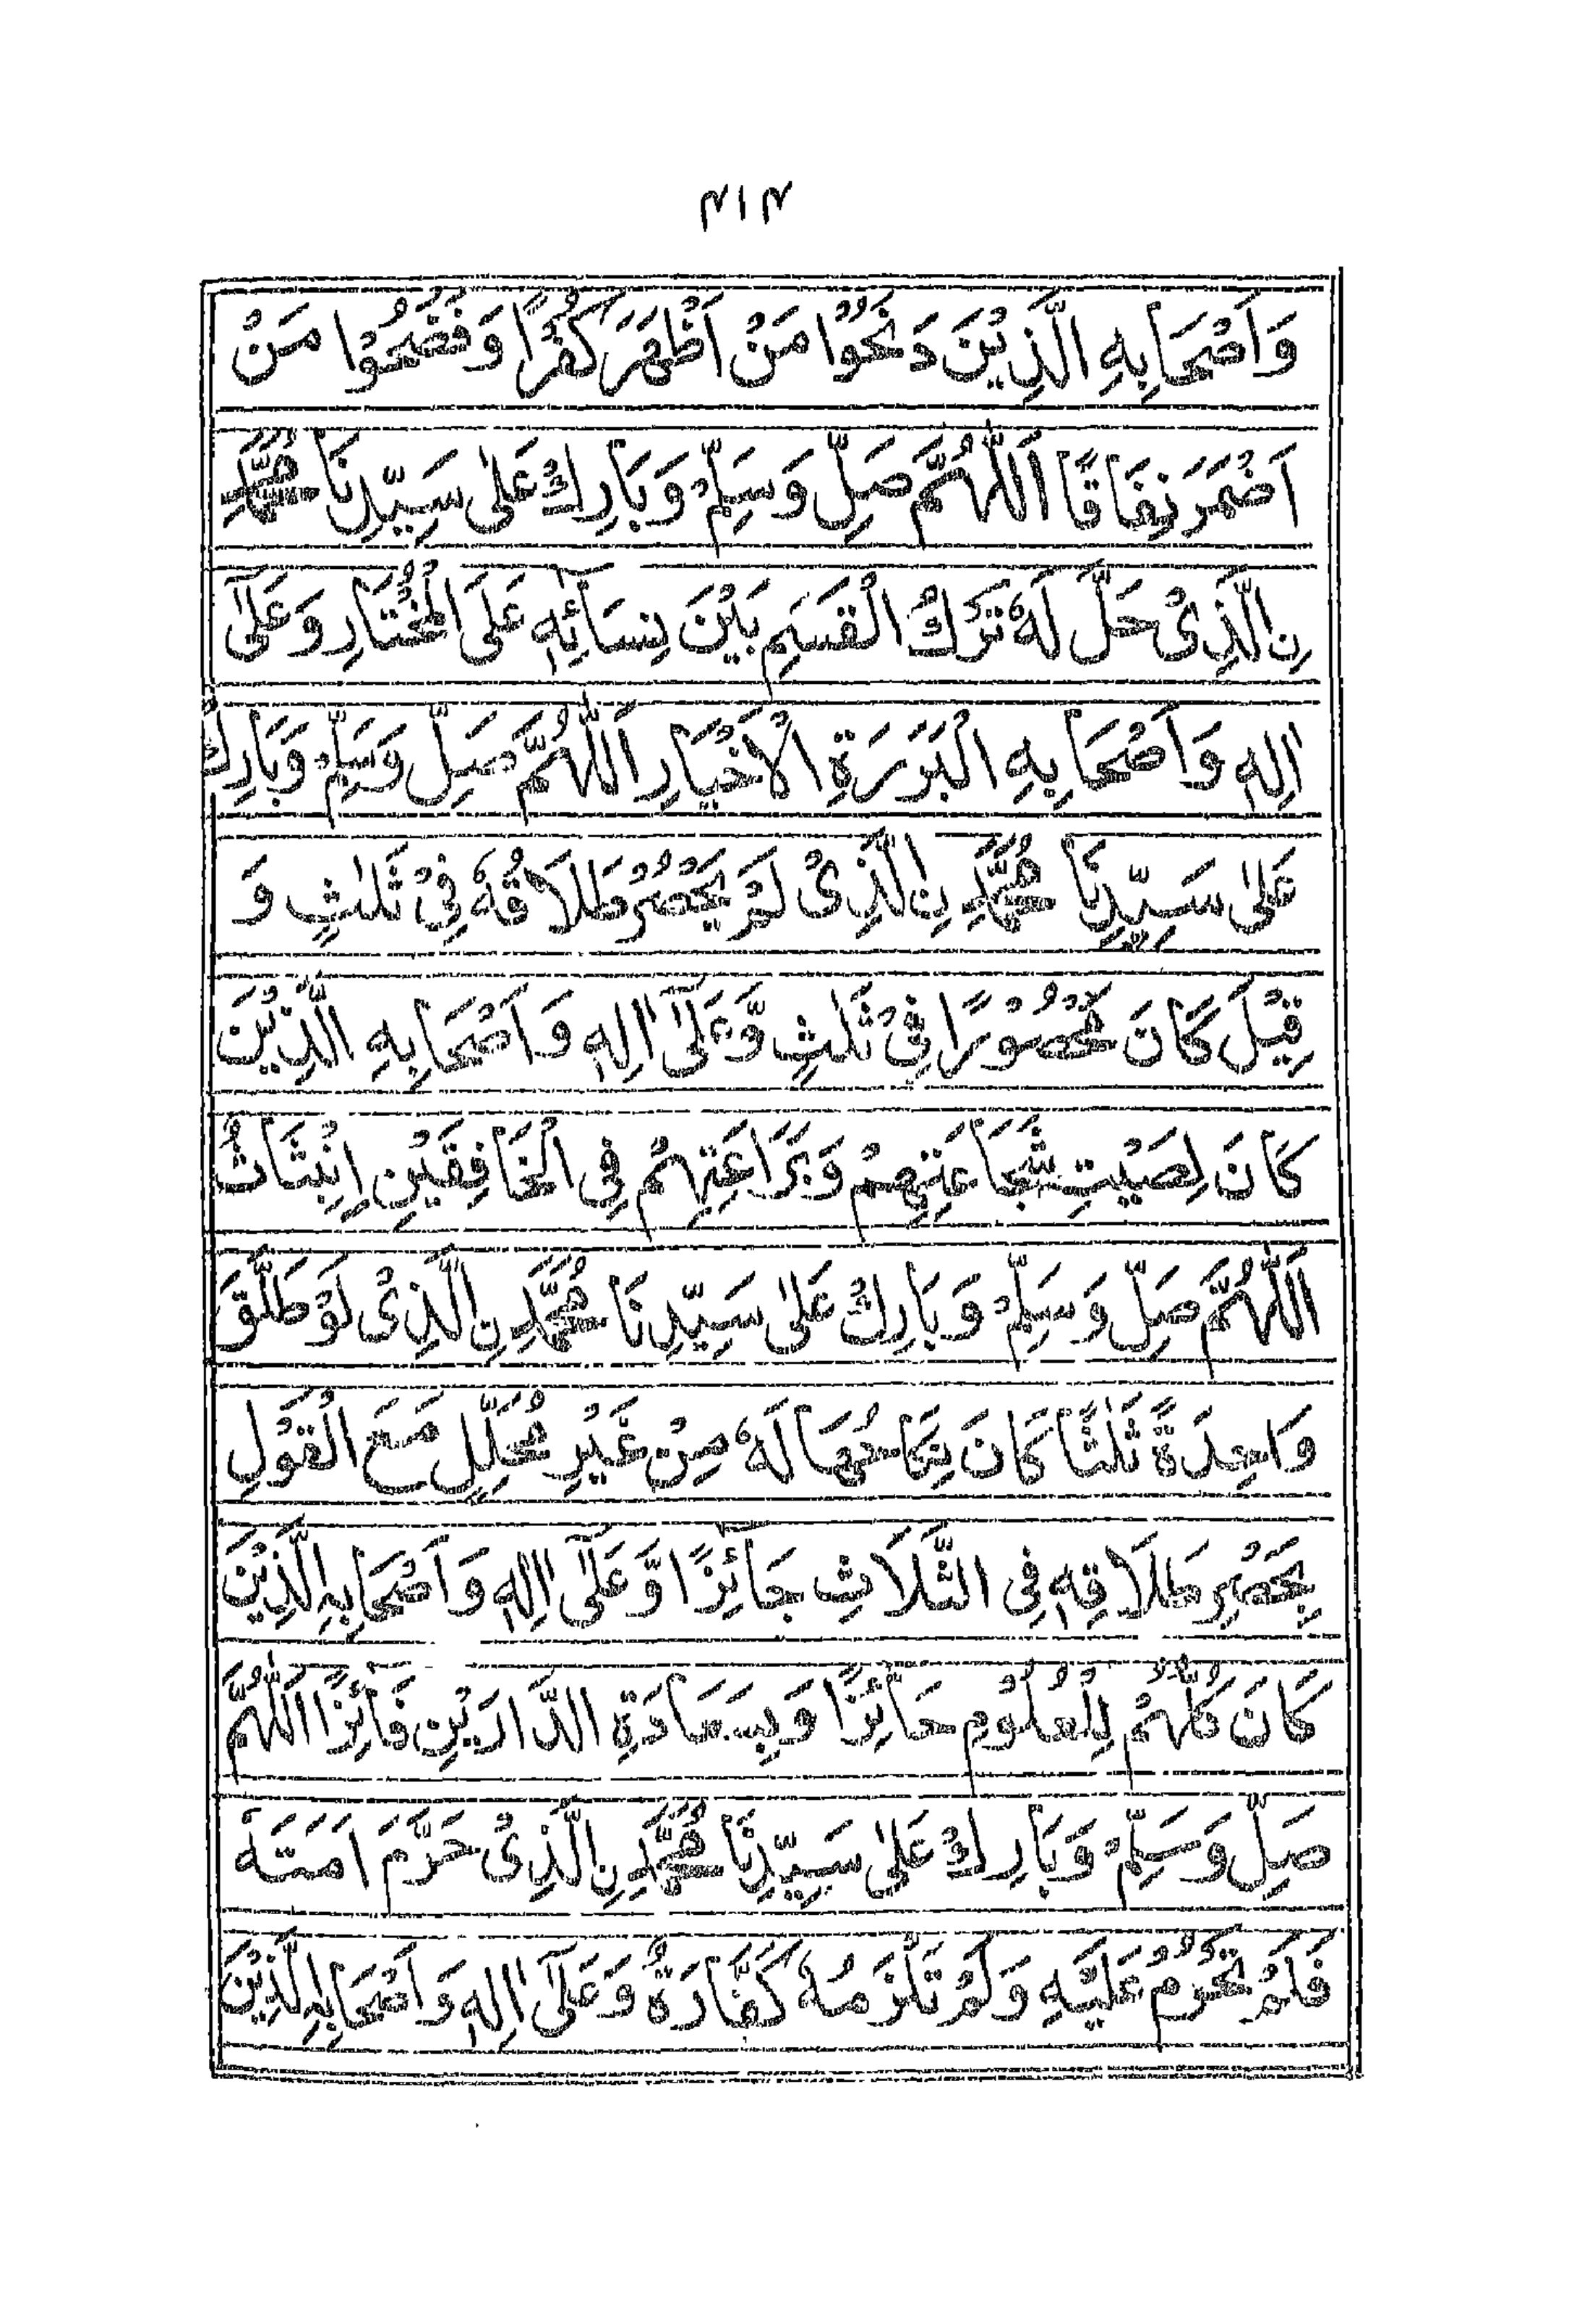 ٣١٣
وَاَصْحَابِهِ الَّذِيْنَ دَنَخُوْا مَنْ اَظْهَرَ كُفْرًا وَفَضَحُوْا مَنْ
اَضْمَرَ نِفَاقًا اَللّٰهُمَّ صَلِّ وَسَلِّمْ وَبَارِكْ عَلٰى سَيِّدِنَا مُحَمَّدِ
نِ الَّذِىْ حَلَّ لَهٗ تَرْكُ الْقَسَمِ بَيْنَ نِسَآئِهٖ عَلَى الْمُخْتَارِ وَعَلٰٓى
اٰلِهٖ وَاَصْحَابِهِ الْبَرَرَةِ الْاَخْيَارِ اَللّٰهُمَّ صَلِّ وَسَلِّمْ وَبَارِكْ
عَلٰى سَيِّدِنَا مُحَمَّدِ نِ الَّذِىْ لَمْ يَحْصُرْ طَلَاقُهٗ فِىْ ثَلٰثٍ وَ
قِيْلَ كَانَ مَحْصُوْرًا فِىْ ثَلٰثٍ وَّعَلٰٓى اٰلِهٖ وَاَصْحَابِهِ الَّذِيْنَ
كَانَ لِصَيْتِ شَجَاعَتِهِمْ وَبَرَاعَتِهِمْ فِى الْخَافِقَيْنِ اِنْبِثَاثُ
اَللّٰهُمَّ صَلِّ وَسَلِّمْ وَبَارِكْ عَلٰى سَيِّدِنَا مُحَمَّدِ نِ الَّذِىْ لَوْ طَلَّقَ
وَاحِدَةً ثَلٰثًا كَانَ نِكَاحُهَا لَهٗ مِنْ غَيْرِ مُحَلِّلٍ مَعَ الْقَوْلِ
بِحَصْرِ طَلَاقِهٖ فِى الثَّلَاثِ جَائِزًا وَّعَلٰٓى اٰلِهٖ وَاَصْحَابِهِ الَّذِيْنَ
كَانَ كُلُّهُمْ لِلْعُلُوْمِ حَائِزًا وَبِسَعَادَةِ الدَّارَيْنِ فَائِزًا اَللّٰهُمَّ
صَلِّ وَسَلِّمْ وَبَارِكْ عَلٰى سَيِّدِنَا مُحَمَّدِ نِ الَّذِىْ حَرَّمَ اَمَتَهٗ
فَلَمْ تَحْرُمْ عَلَيْهِ وَلَمْ تَلْزَمْهُ كَفَّارَةٌ وَعَلٰٓى اٰلِهٖ وَاَصْحَابِهِ الَّذِيْنَ